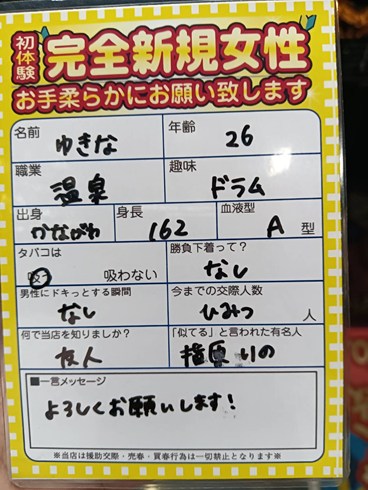 初体験 完全新規女性
お手柔らかにお願い致します
名前 ゆきな 年齢 26
職業 温泉 趣味 ドラム
出身 かながわ 身長 162 血液型 A 型
タバコは 吸う 吸わない 勝負下着って? なし
男性にドキっとする瞬間 なし 今までの交際人数 ひみつ 人
何で当店を知りましたか? 友人 「似てる」と言われた有名人 りの
■一言メッセージ
よろしくお願いします!
※当店は援助交際・売春・買春行為は一切禁止となります※